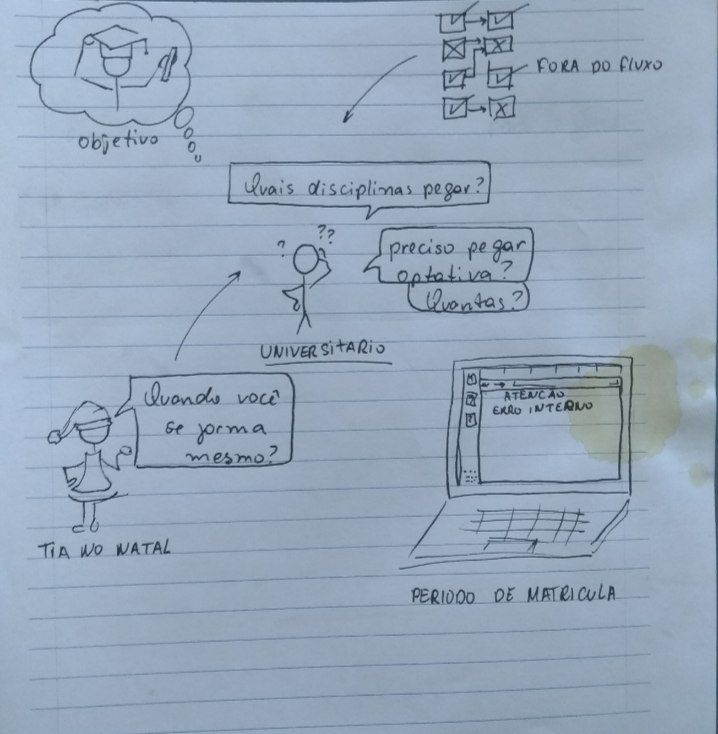 objetivo
FORA DO FLUXO
Quais disciplinas pegar?
? ??
preciso pegar
optativa?
Quantas?
UNIVERSITARIO
Quando você
se forma
mesmo?
TIA NO NATAL
ATENCAO
ERRO INTERNO
PERIODO DE MATRICULA